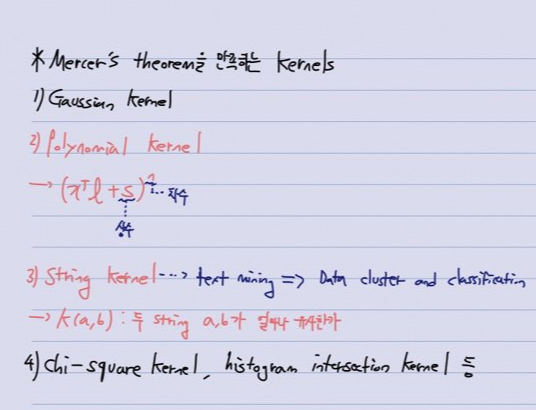 * Mercer's theorem을 만족하는 kernels
1) Gaussian kernel
2) Polynomial kernel
→ (xᵀl + s)ⁿ ... 차수
상수
3) String kernel ---> text mining => Data cluster and classification
→ k(a,b) : 두 string a,b가 얼마나 유사한가
4) chi-square kernel, histogram intersection kernel 등